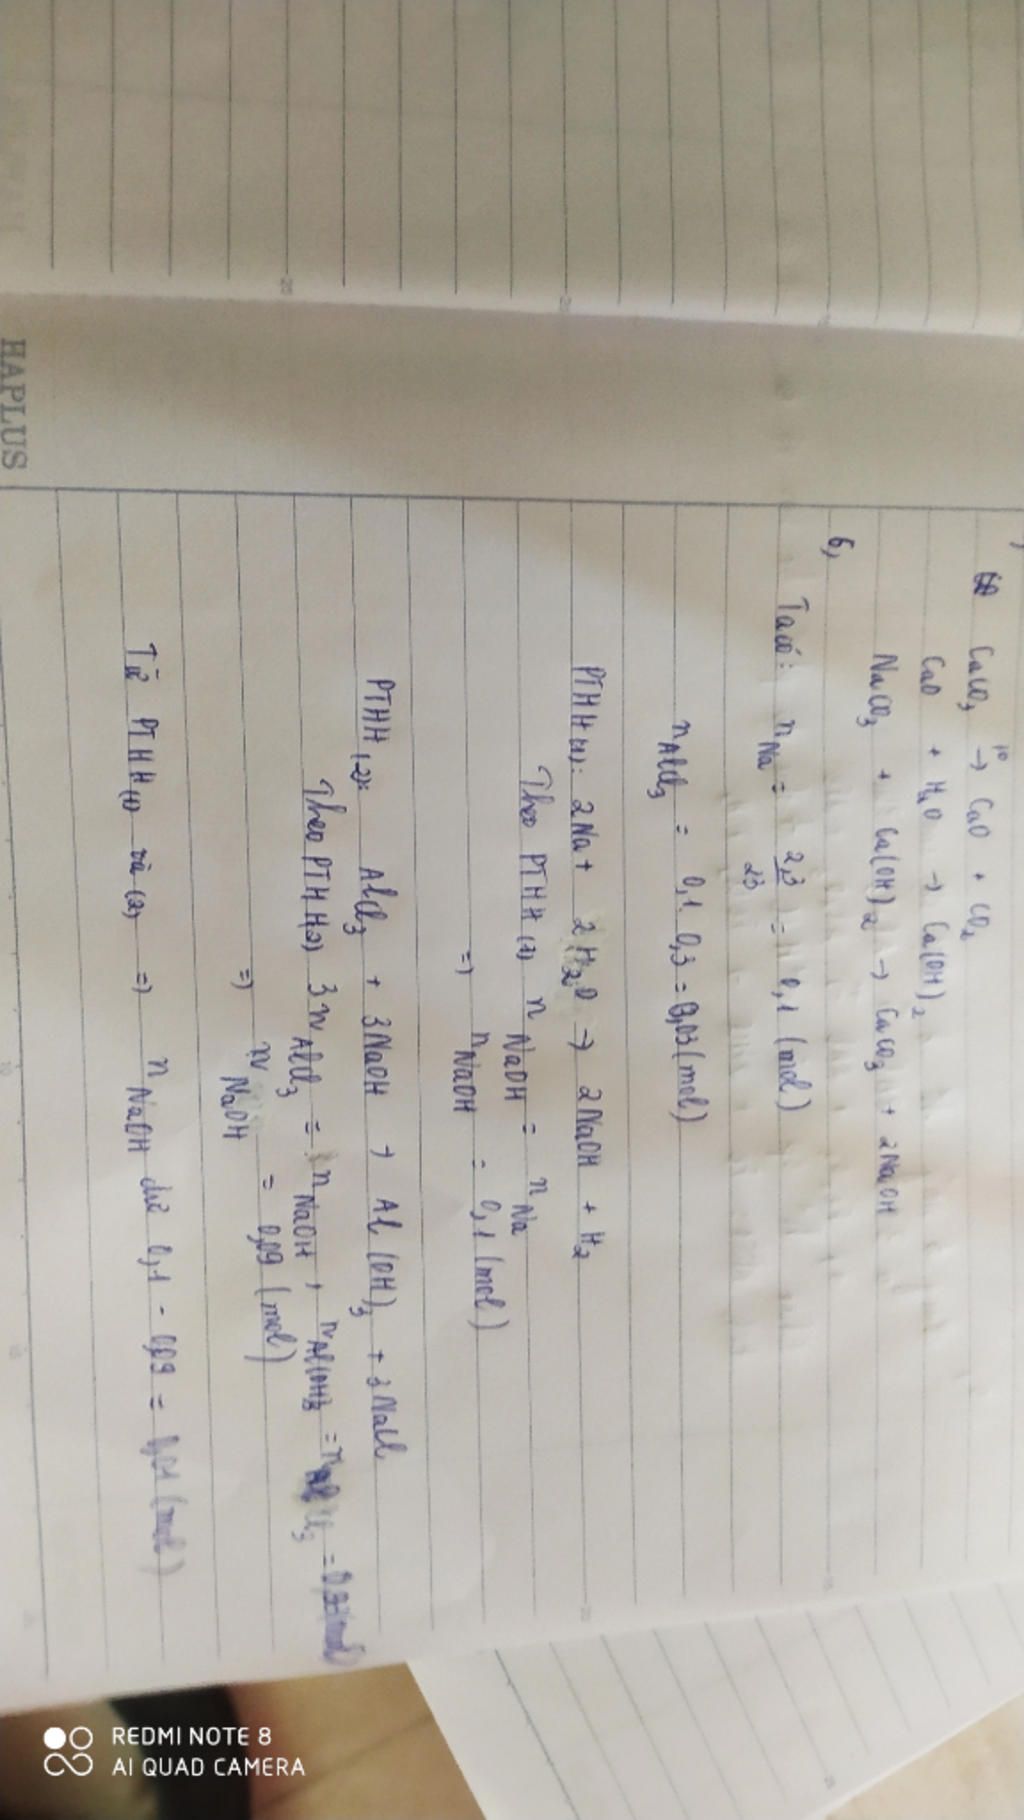 CaCO3 →to CaO + CO2
CaO + H2O → Ca(OH)2
NaCO3 + Ca(OH)2 → CaCO3 + 2NaOH
6,
Ta có: nNa = 2,3/23 = 0,1 (mol)
nAlCl3 = 0,1. 0,3 = 0,03 (mol)
PTHH(1): 2Na + 2H2O → 2NaOH + H2
Theo PTHH(1) nNaOH = nNa
=) nNaOH = 0,1 (mol)
PTHH(2): AlCl3 + 3NaOH → Al(OH)3 + 3NaCl
Theo PTHH(2) 3nAlCl3 = nNaOH, nAl(OH)3 = nAlCl3 =
=) nNaOH = 0,09 (mol)
Từ PTHH(1) và (2) =) nNaOH dư 0,1 - 0,09 = 0,01 (mol)
HAPLUS
REDMI NOTE 8
AI QUAD CAMERA